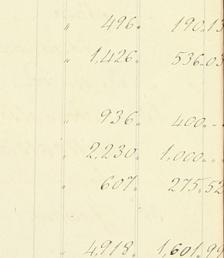 " 496. 190.13
" 1.426. 536.03
" 936. 400.--
" 2.230. 1.000.--
" 607. 275.52
" 4.918. 1,601.99